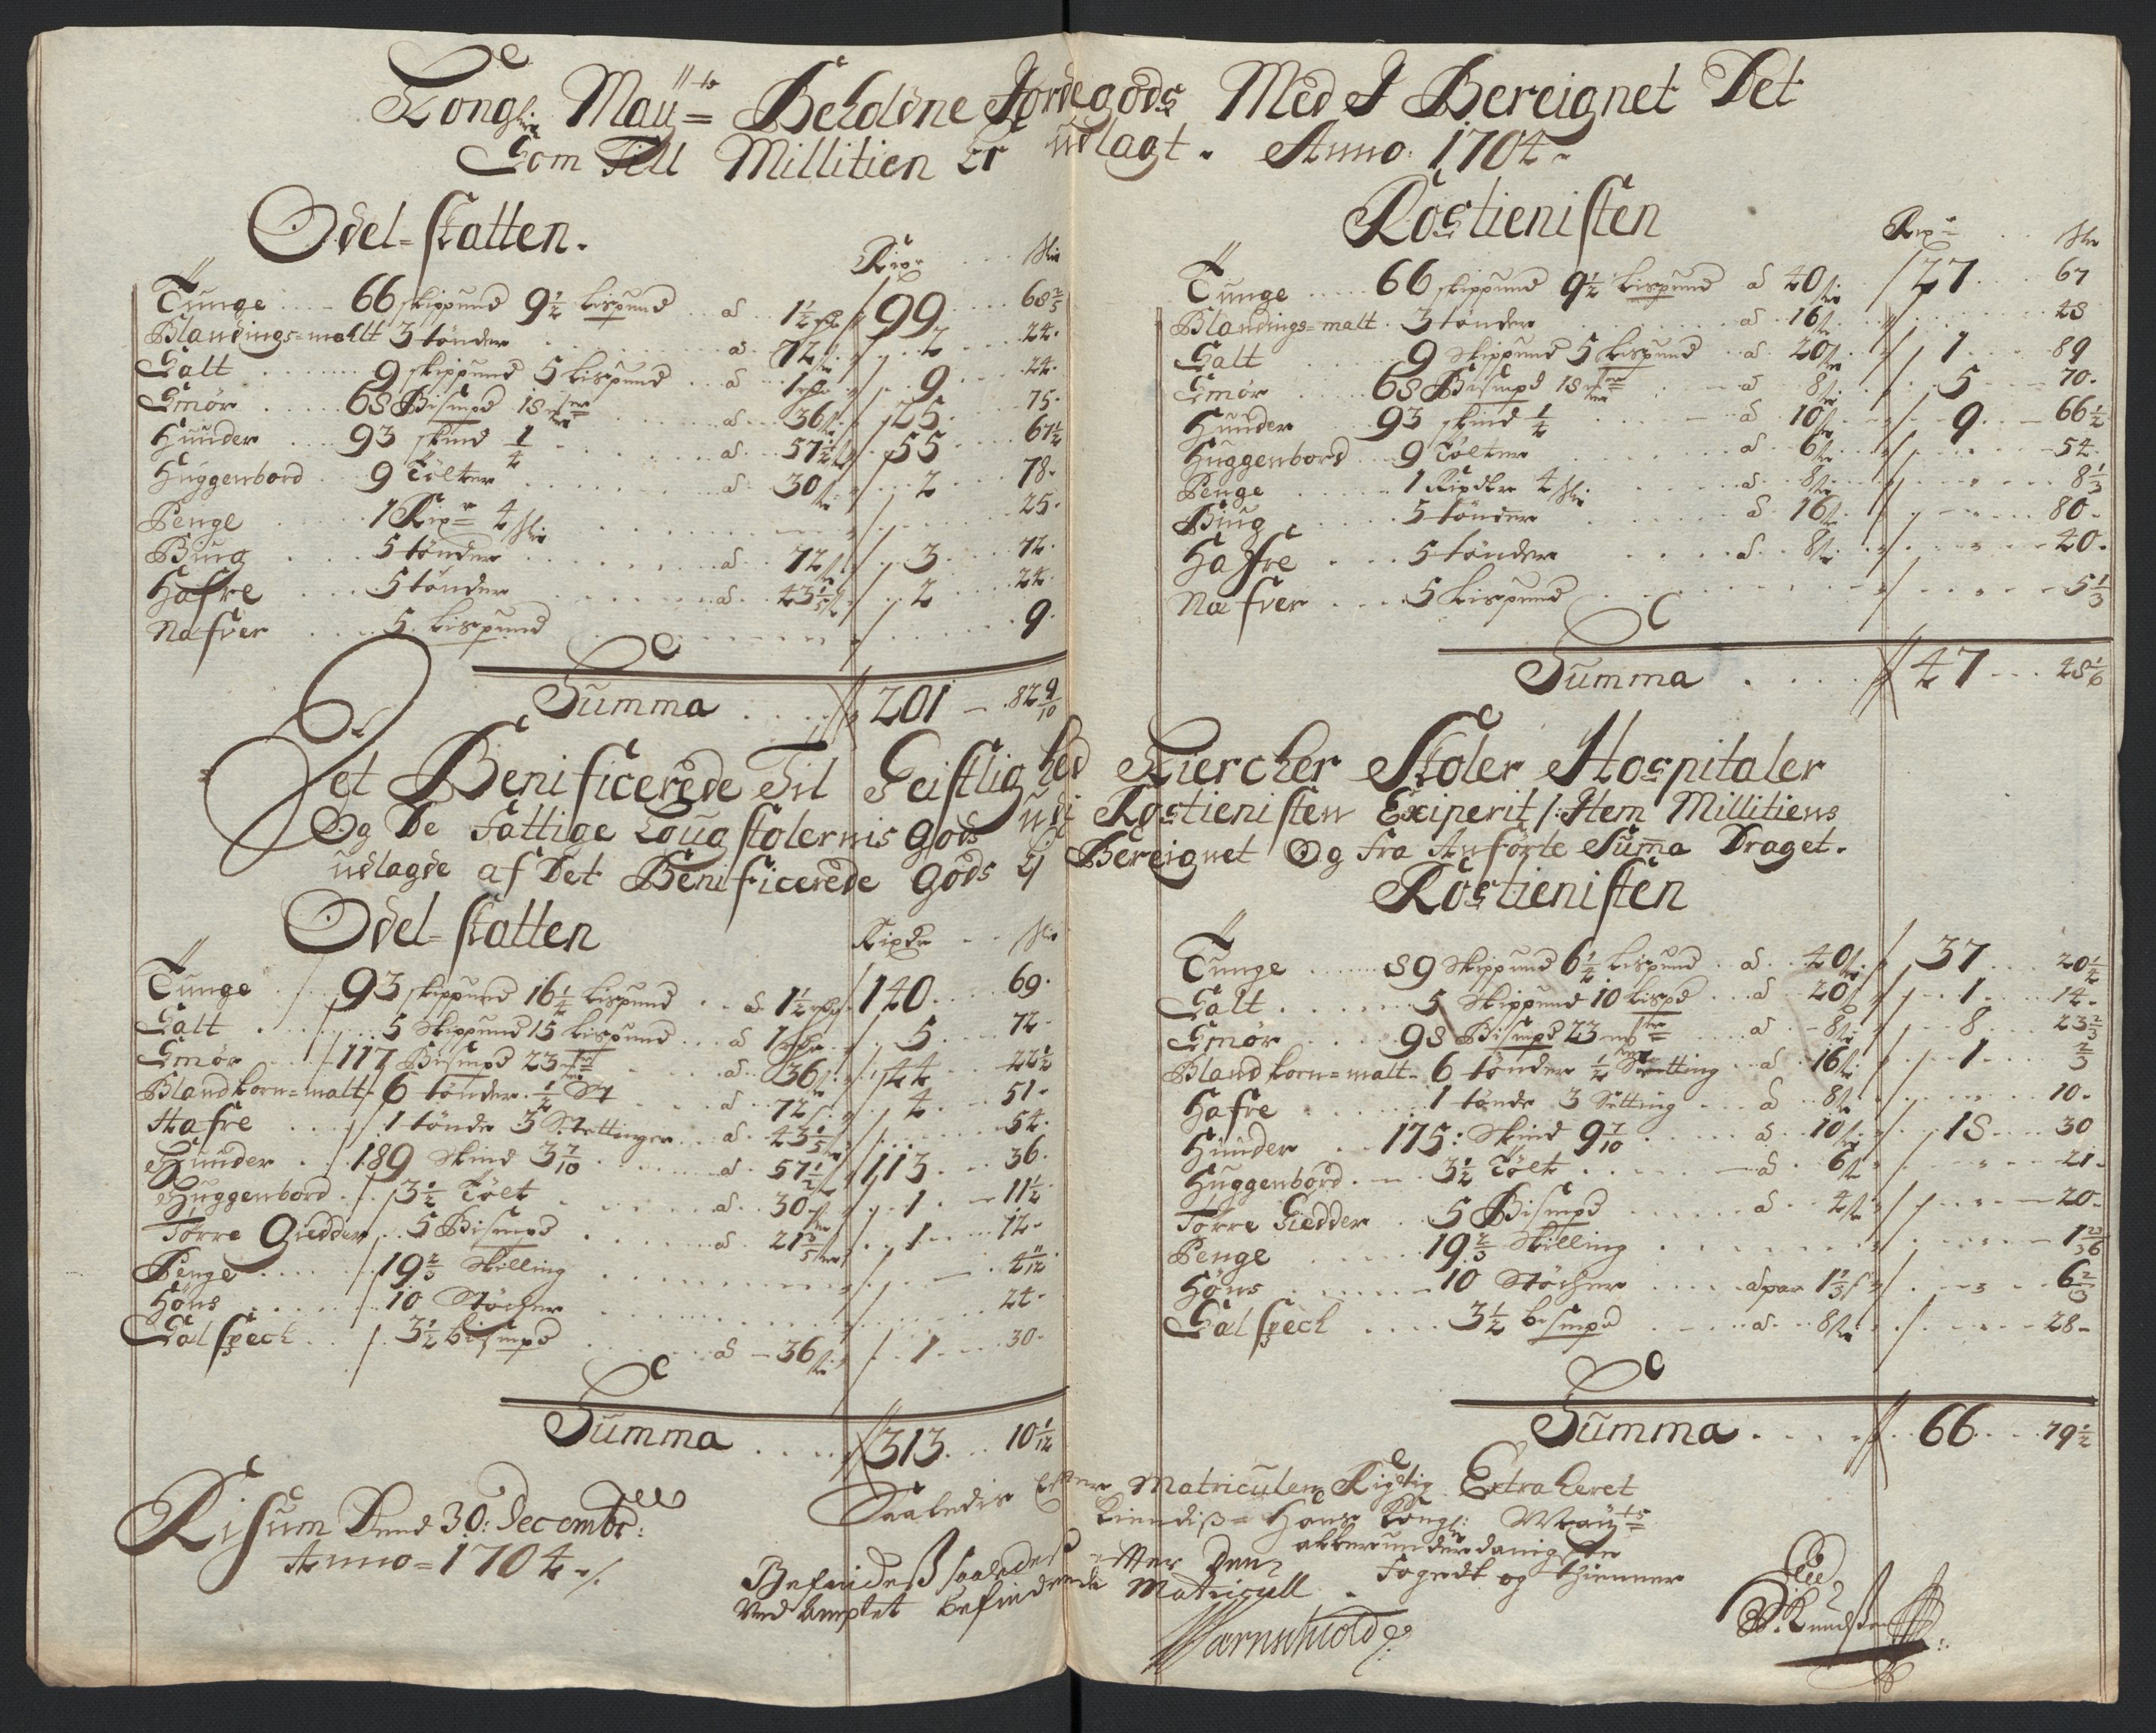 Kongl: Maÿ:ts Beholdne Jordegods Med J Bereignet Det
Som Till Millitien Er udlagt. Anno: 1704
Odel-skatten.
Rixr ... skr
Tunge 66 skippund 9½ Lispund a 1½ rdr 99 68⅖
Blandings-mallt 3 tønder a 72 s 2 24
Salt 9 skippund 5 Lispund a 1 rdr 9 24
Smør 68 Bismpd 18 mr a 36 s 25 75
Hunder 93 skind ¼ a 57½ s 55 67½
Huggenbord 9 Tolter a 30 s 2 78
Penge 1 Rixr 4 skr 25
Bÿug 5 tønder a 72 s 3 72
Hafre 5 tønder a 43⅕ s 2 24
Næfver 5 Lispund 9
Summa 201 82 9/10
Rostienisten
Rixr skr
Tunge 66 skippund 9½ Lispund a 40 s 27 67
Blandings-malt 3 tønder a 16 s 48
Salt 9 Skippund 5 Lispund a 20 s 1 89
Smør 68 Bismpd 18 mr a 8 s 5 70
Hunder 93 skind ¼ a 10 s 9 66½
Huggenbord 9 Tolter a 6 s 54
Penge 1 Rixdlr 4 skr a 8 s 8⅓
Bÿug 5 tønder a 16 s 80
Hafre 5 tønder a 8 s 40
Næfver 5 Lispund 5⅓
Summa 47 48⅙
Det Benificerede Til Geistlighed Kiercher Skoler Hospitaler
Og De Fattige Laugstolernis Gods udi Rostienisten Exiperit /: Item Millitiens
udlagde af Det Benificerede Gods Ej Bereignet Og fra Anførte Suma Draget.
Odel-skatten
Rixdr skr
Tunge 93 skippund 16¼ Lispund a 1½ rdr 140 69
Salt 5 Skippund 15 Lispund a 1 rdr 5 72
Smør 117 Bismpd 23 mr a 36 s 44 22½
Blandkorn-malt 6 tønder ½ St a 72 s 4 51
Hafre 1 tønde 3 Settinger a 43⅕ s 54
Hunder 189 Skind 3 7/10 a 57½ s 113 36
Huggenbord 3½ Tolt a 30 s 1 11½
Tørre Giedder 5 Bismpd a 21⅗ s 1 12
Penge 19⅔ Skilling 4 11/12
Høns 10 Støcher 24
Salspech 3½ bismpd a 36 s 1 30
Summa 313 10 1/12
Rostienisten
Tunge 89 Skippund 6½ Lispund a 40 s 37 20½
Salt 5 Skippund 10 Lispd a 20 s 1 14
Smør 98 Bismpd 23 mr a 8 s 8 23⅔
Blandkorn-malt 6 tønder ½ Setting a 16 s 1 ⅔
Hafre 1 tønde 3 Setting a 8 s 10
Hunder 175: Skind 9 7/10 a 10 s 18 30
Huggenbord 3½ Tølt a 6 s 21
Tørre Giedder 5 Bismpd a 4 s 20
Penge 19⅔ Skilling 1 23/36
Høns 10 Støcher a par 1⅓ s 6⅔
Salspech 3½ bismpd a 8 s 28
Summa 66 79½
Saaledis Efter Matriculen Rigtig Extraheret
Kiendis Hans Kongl: Maÿts
allerunderdanigste
Fogedt og thienner
Risum Dend 30: Decembr:
Anno-1704
Befindeß saaledeß efter Den
Ved Amptet befindende Matricull